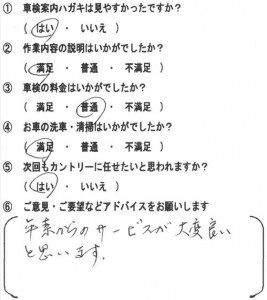 ① 車検案内ハガキは見やすかったですか?
( はい ・ いいえ )
② 作業内容の説明はいかがでしたか?
( 満足 ・ 普通 ・ 不満足 )
③ 車検の料金はいかがでしたか?
( 満足 ・ 普通 ・ 不満足 )
④ お車の洗車・清掃はいかがでしたか?
( 満足 ・ 普通 ・ 不満足 )
⑤ 次回もカントリーに任せたいと思われますか?
( はい ・ いいえ )
⑥ ご意見・ご要望などアドバイスをお願いします
年素からのサービスが大変良い
と思います.